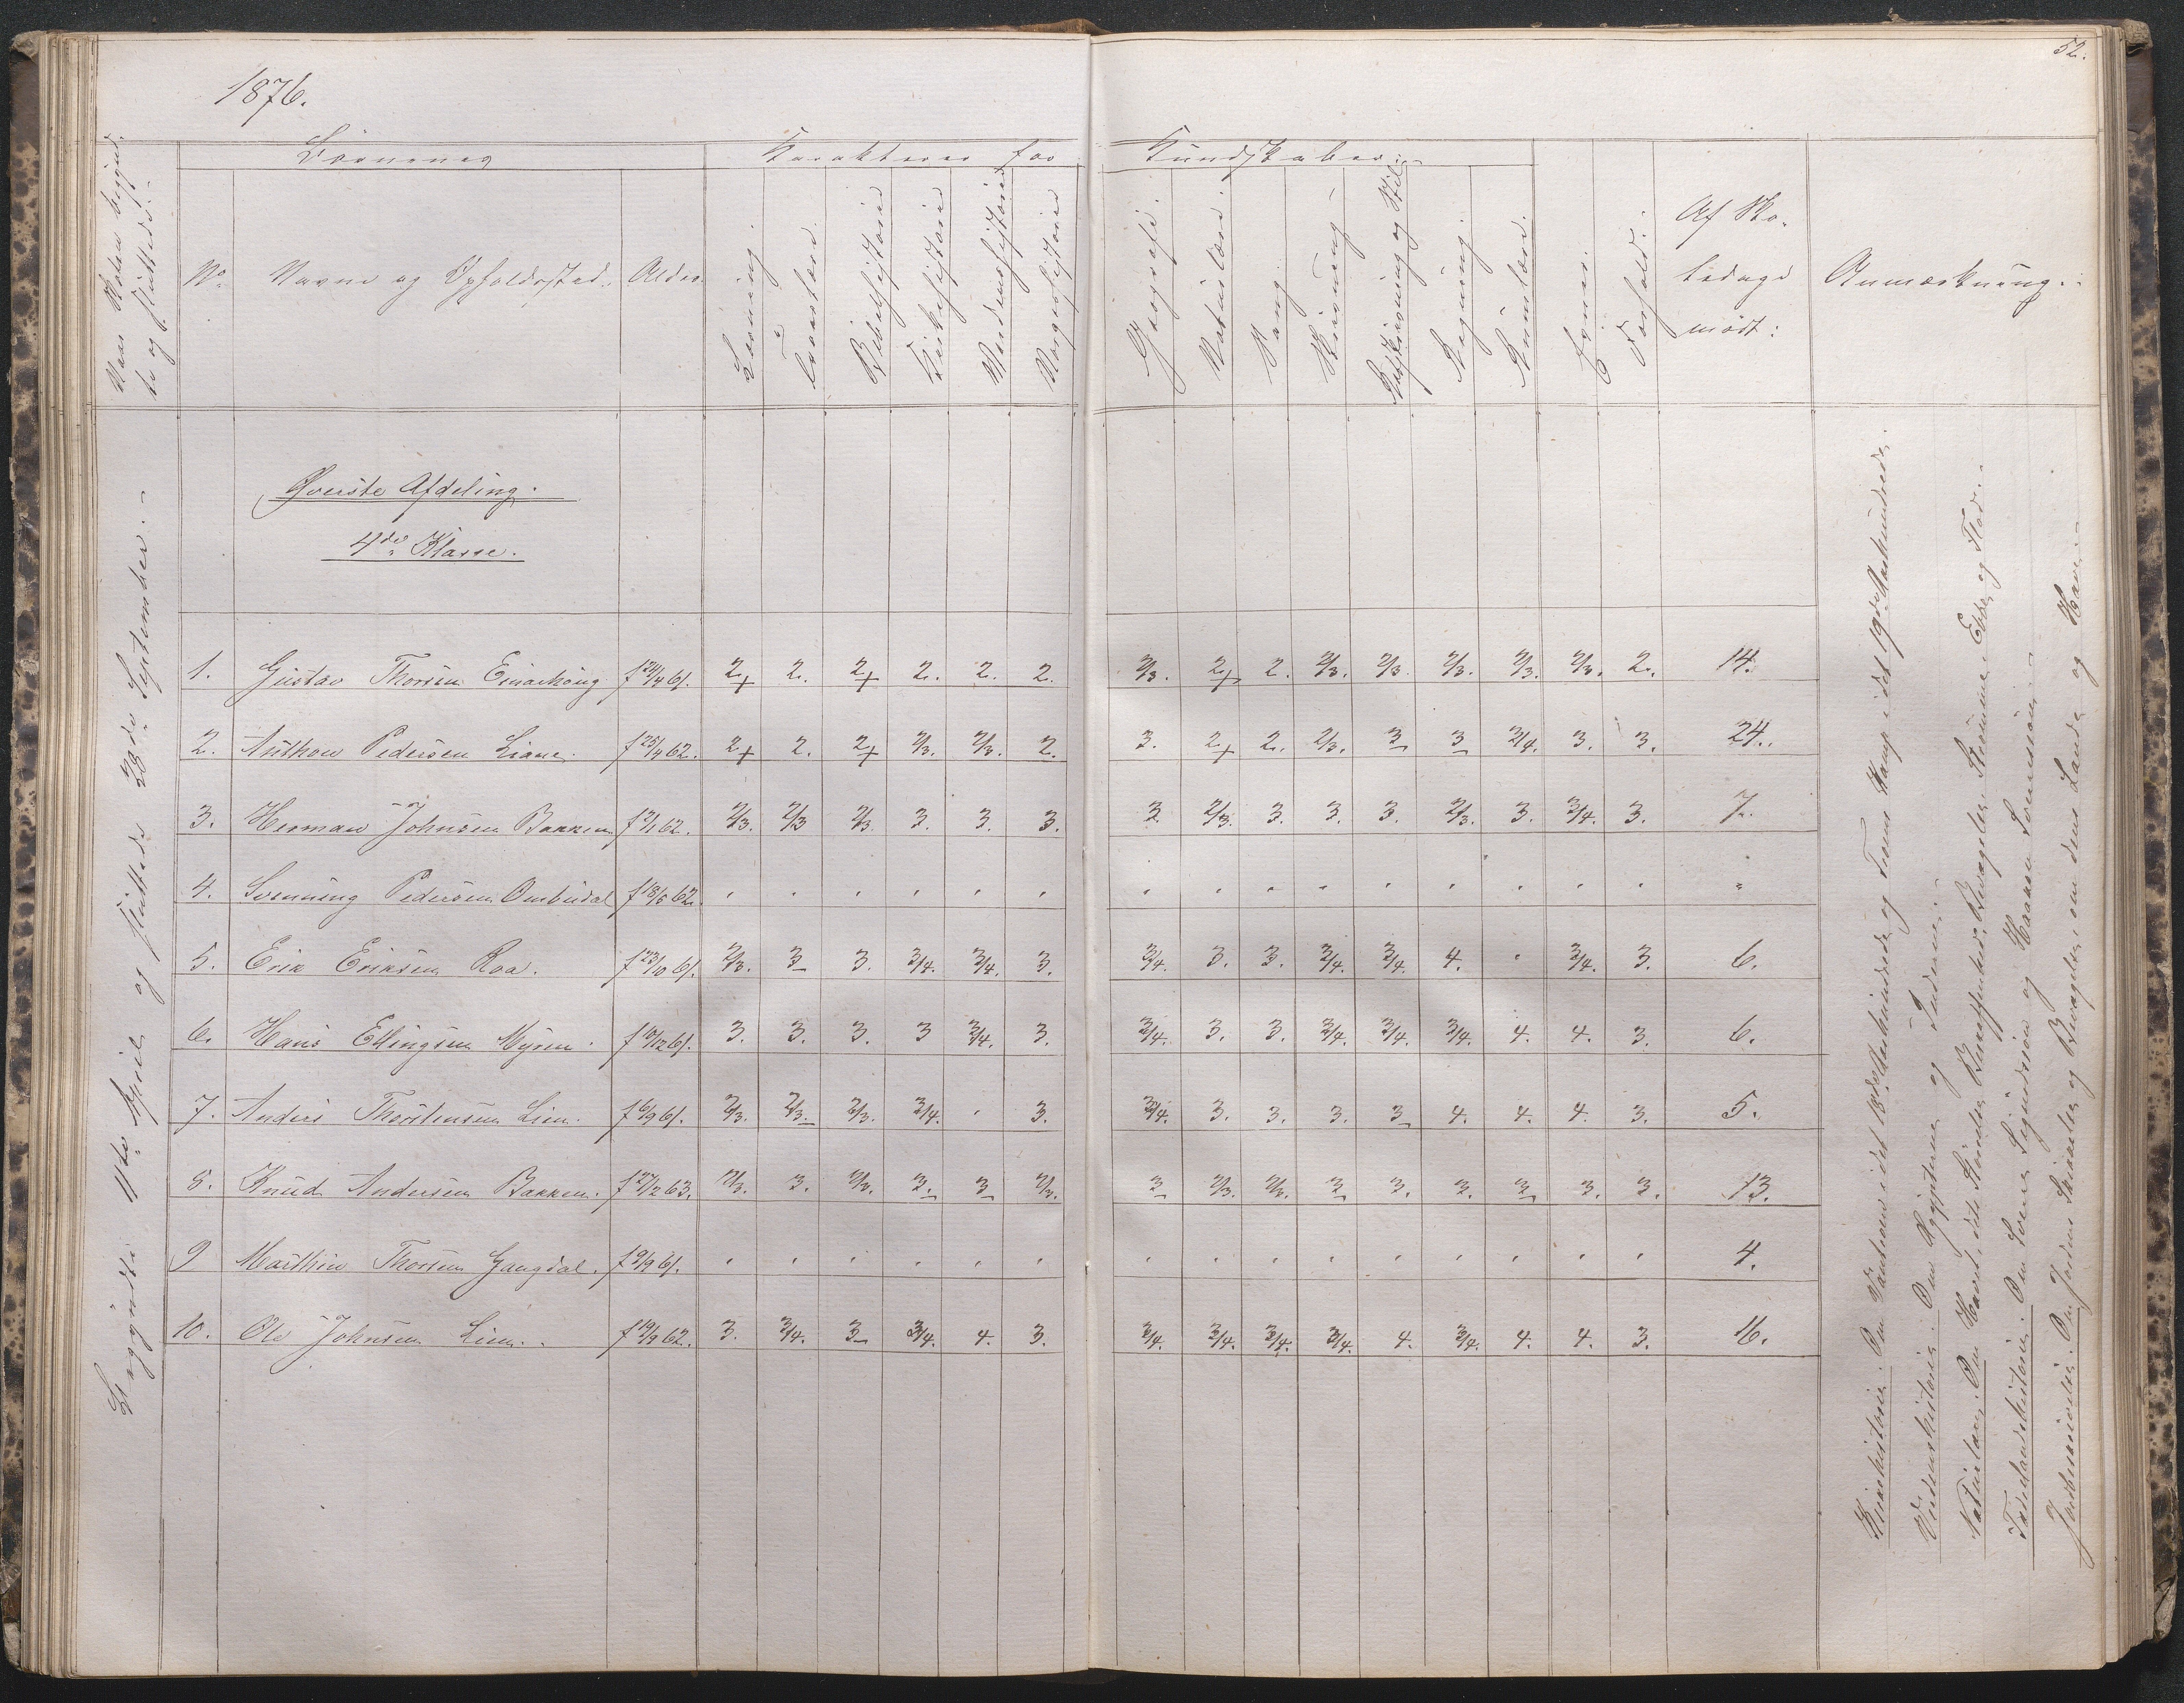 52.
1876.
Naar Skolen begynd-
te og sluttede.
Børnenes
Karakterer for
Kundskaber
No
Navne og Opholdssted.
Alder.
Læsning.
Troeslære.
Bibelhistorie
Kirkehistorie
Verdenshistorie
Norgeshistorie
Geografi.
Naturlære.
Sang
Skrivning
Retskrivning og Stil
Regning.
Rumlære.
Evner.
Forhold.
Af Sko-
ledage
mødt:
Anmærkning.
Øverste Afdeling.
4de Klasse.
Begyndte 11te April og sluttede 28de September.
1. Gustav Thorsen Einarhaug f 24/4 61. 2+ 2. 2+ 2. 2. 2. 2/3. 2+ 2. 2/3. 2/3 2/3. 2/3. 2/3. 2. 14.
2. Anthon Pedersen Liane. f 25/4 62. 2+ 2. 2+ 2/3. 2/3. 2. 3. 2+ 2. 2/3. 3 3 3/4. 3. 3. 24.
3. Herman Johnsen Bakken f 2/1 62. 2/3. 2/3 2/3 3. 3. 3. 3 2/3. 3. 3. 3. 2/3. 3. 3/4. 3. 7.
4. Svenning Pedersen Ombudal f 18/5 62. " " " " " " " " " " " " " " " "
5. Erik Eriksen Roa. f 23/10 61. 2/3. 3 3. 3/4. 3/4. 3. 3/4. 3. 3. 3/4. 3/4. 4. " 3/4. 3. 6.
6. Hans Ellingsen Myren. f 10/12 61. 3. 3. 3. 3 3/4. 3. 3/4. 3. 3. 3/4. 3/4. 3/4. 4. 4. 3. 6.
7. Anders Thorstensen Lien. f 6/9 61. 2/3. 2/3. 2/3. 3/4. " 3. 3/4. 3. 3. 3. 3 4. 4. 4. 3. 5.
8. Knud Andersen Bakken. f 27/2 63. 2/3. 3. 2/3. 3. 3 2/3. 3 2/3. 2/3. 3 3. 3. 3 3. 3. 13.
9 Marthin Thorsen Gangdal. f 9/9 61. " " " " " " " " " " " " " " " 4.
10. Ole Johnsen Lien. f 19/9 62. 3. 3/4. 3 3/4. 4. 3. 3/4. 3/4. 3/4. 3/4. 4. 3/4. 4. 4. 3. 16.
Kirkehistorie. Om Vantroen i det 18de Aarhundrede og Troens Kamp i det 19de Aarhundrede.
Verdenshistorie. Om Ægypterne og Inderne.
Naturlære. Om Havet, dets Bevægelser, Strømme, Ebbe og Flod.
Fædrelandshistorie. Om Sverre Sigurdssøn og Haakon Sverressøn.
Jordens Skikkelse og Bevægelse, om dens Lande og Have.